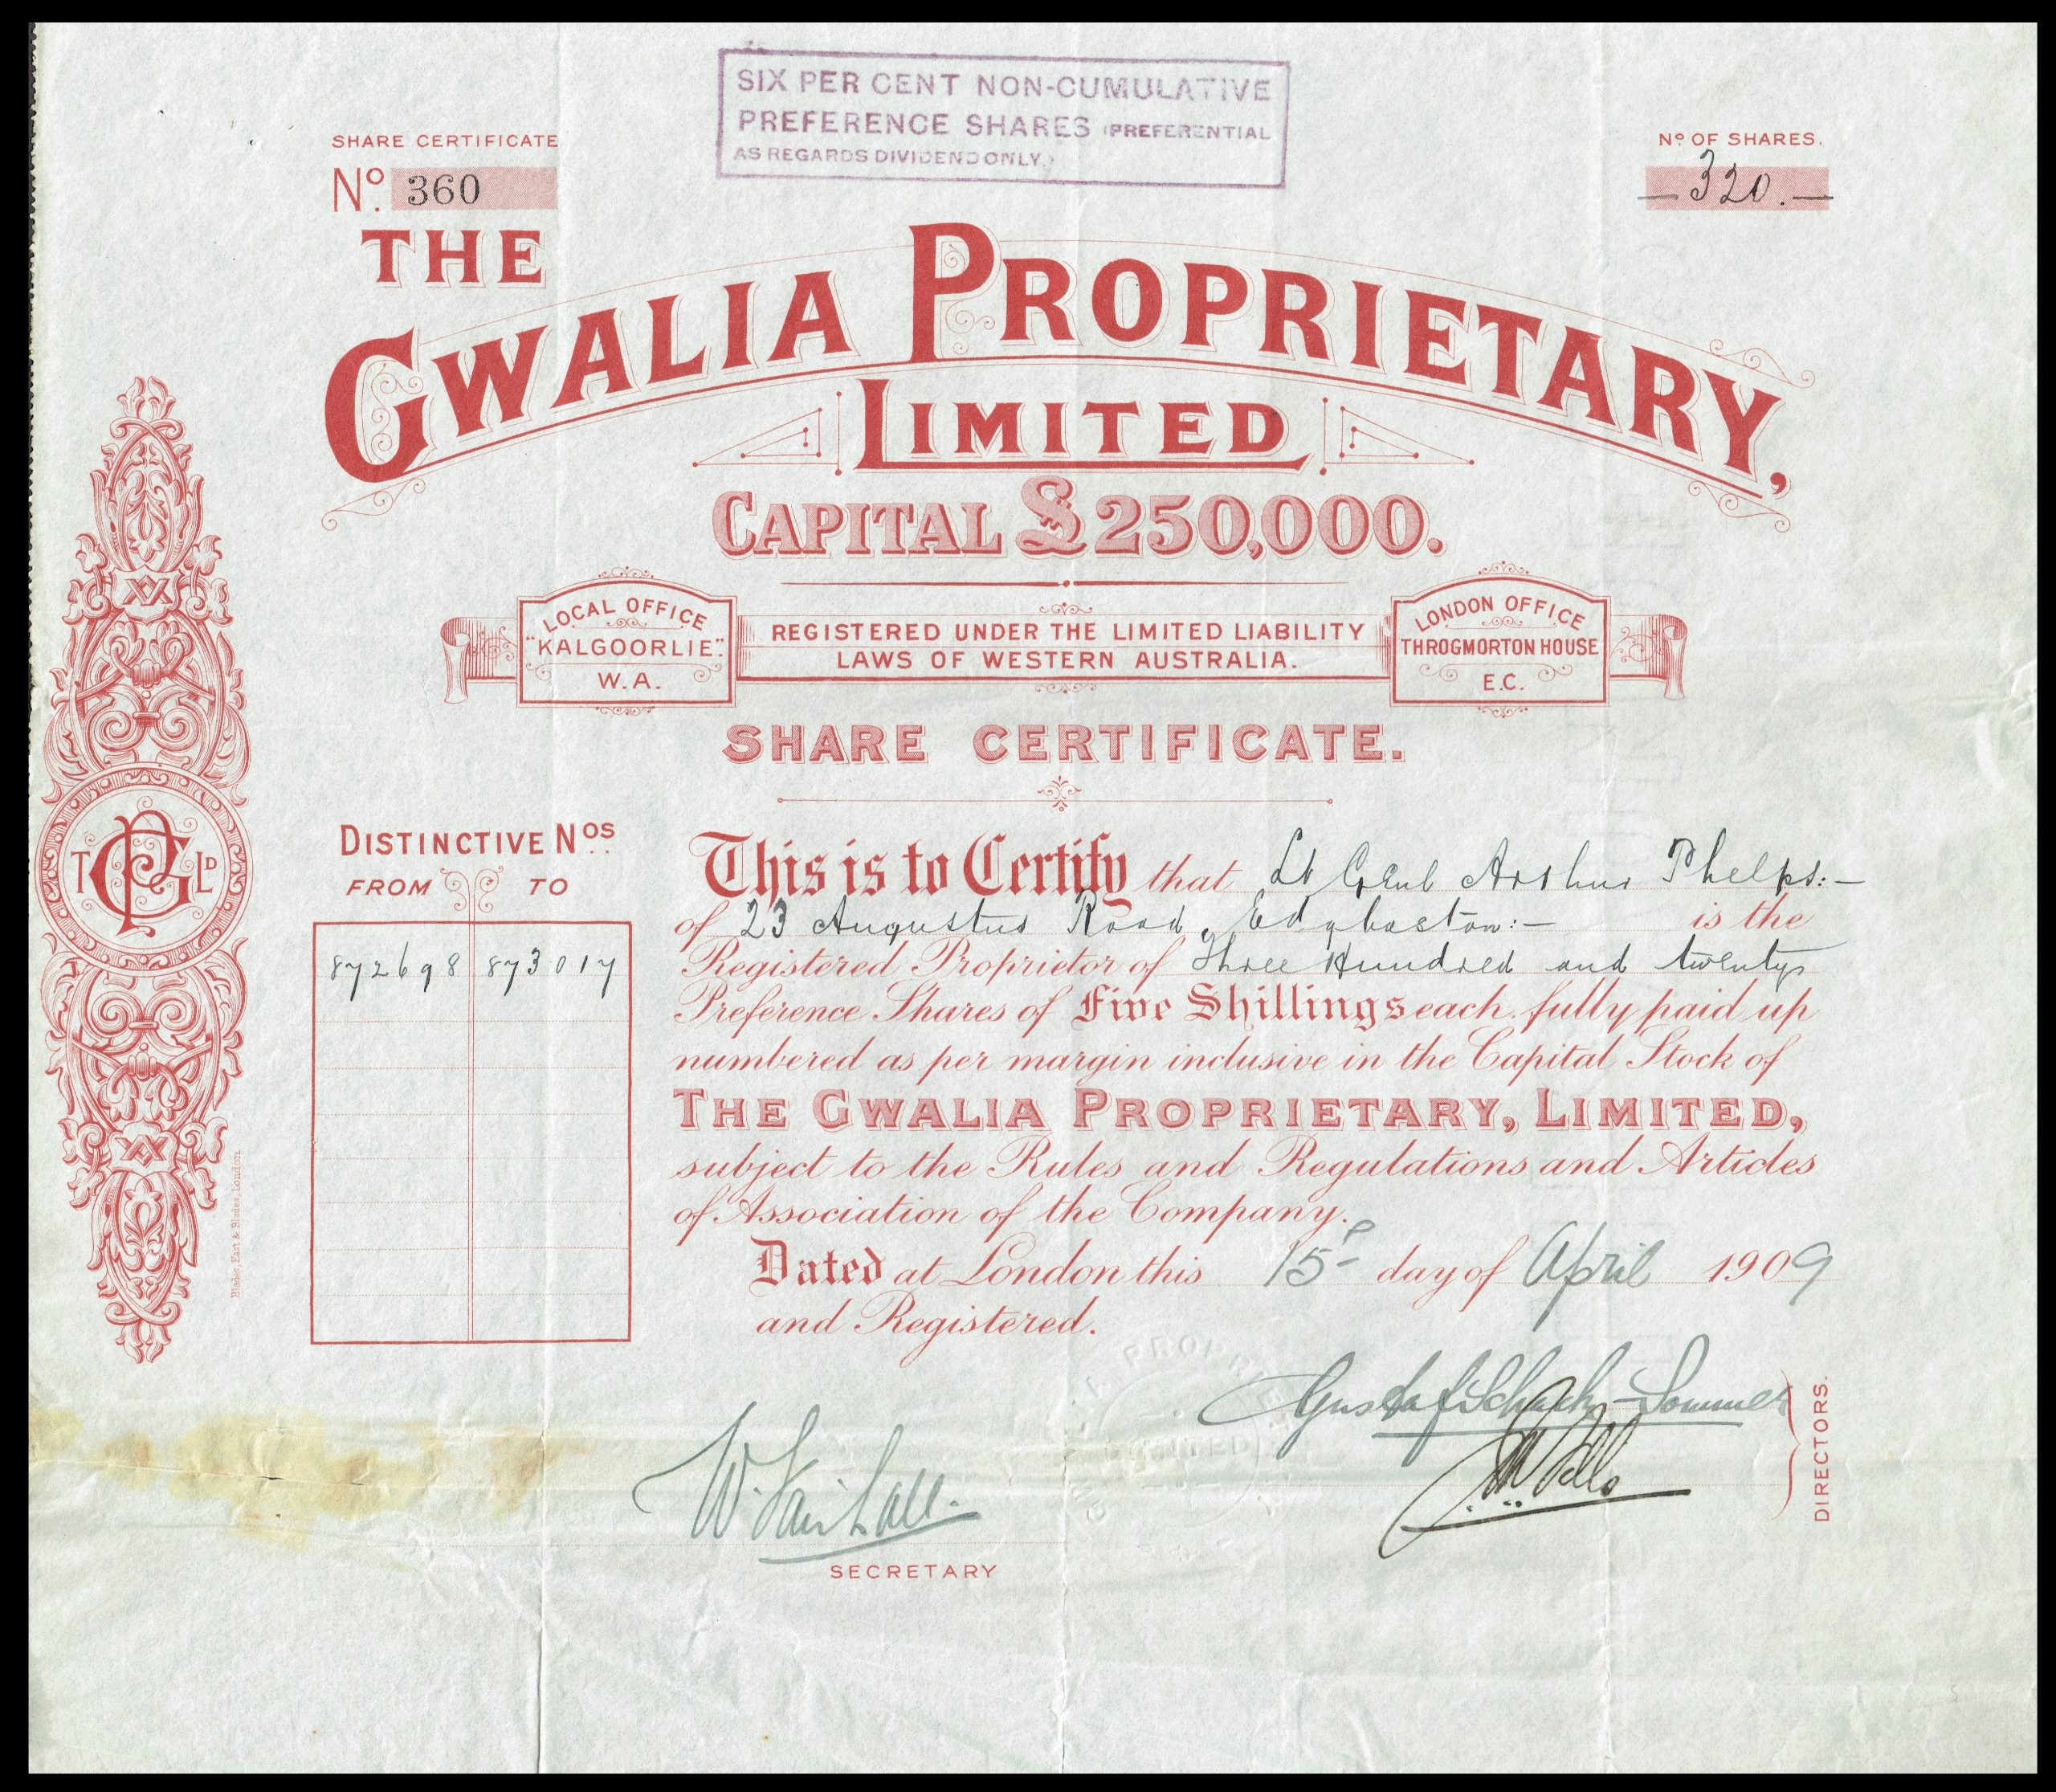 SIX PER CENT NON-CUMULATIVE
PREFERENCE SHARES (PREFERENTIAL
AS REGARDS DIVIDEND ONLY.)
SHARE CERTIFICATE
Nº. 360
Nº OF SHARES.
— 320. —
THE
GWALIA PROPRIETARY,
LIMITED
CAPITAL £250,000.
LOCAL OFFICE
"KALGOORLIE".
W.A.
REGISTERED UNDER THE LIMITED LIABILITY
LAWS OF WESTERN AUSTRALIA.
LONDON OFFICE
THROGMORTON HOUSE
E.C.
SHARE CERTIFICATE.
T GP LD
DISTINCTIVE NOS.
FROM TO
872698 873017
This is to Certify that Lt Genl Arthur Phelps:—
of 23 Augustus Road, Edgbaston:— is the
Registered Proprietor of Three Hundred and twenty
Preference Shares of Five Shillings each fully paid up
numbered as per margin inclusive in the Capital Stock of
THE GWALIA PROPRIETARY, LIMITED,
subject to the Rules and Regulations and Articles
of Association of the Company.
Dated at London this 15 day of April 1909
and Registered.
Blades, East & Blades, London
PROPRIE
LIMITED
Gustaf Schack-Sommer
DIRECTORS.
W. Fairhall.
SECRETARY